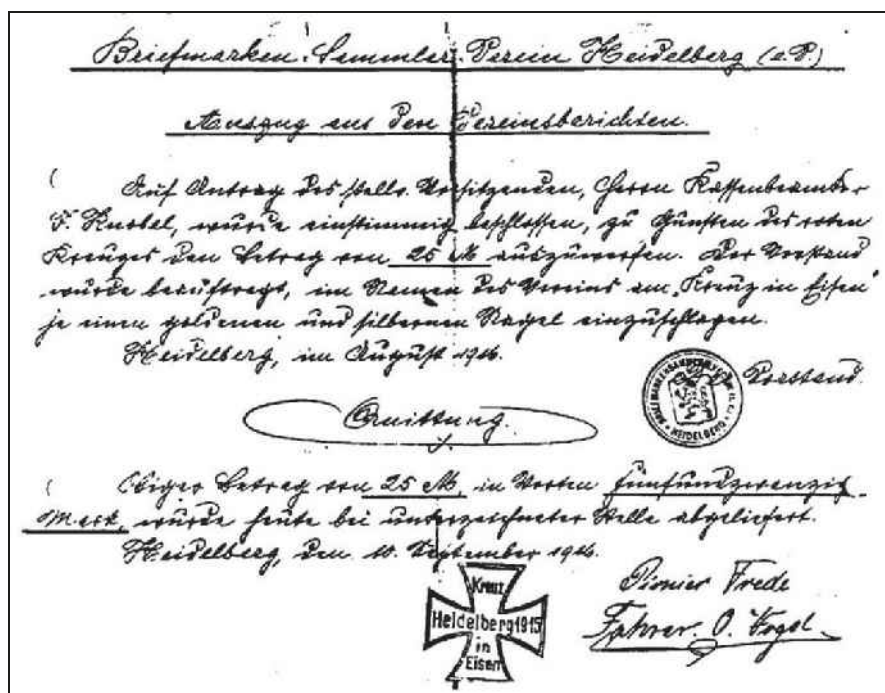 Briefmarken-Sammler-Verein Heidelberg (e.V.)
Auszug aus den Vereinsberichten.
Auf Antrag des stellv. Vorsitzenden, Herrn Kassenbeamter
F. Knobel, wurde einstimmig beschlossen, zu Gunsten des roten
Kreuzes den Betrag von 25 M auszuwerfen. Der Vorstand
wurde beauftragt, im Namen des Vereins am "Kreuz in Eisen"
je einen goldenen und silbernen Nagel einzuschlagen.
Heidelberg, im August 1916.
Vorstand.
HEIDELBERG
Quittung.
Obiger Betrag von 25 M, in Worten fünfundzwanzig
Mark, wurde heute bei unterzeichneter Stelle abgeliefert.
Heidelberg, den 10. September 1916.
Kreuz
Heidelberg 1915
in
Eisen
Pionier Frede
Fahrer. O. Vogel